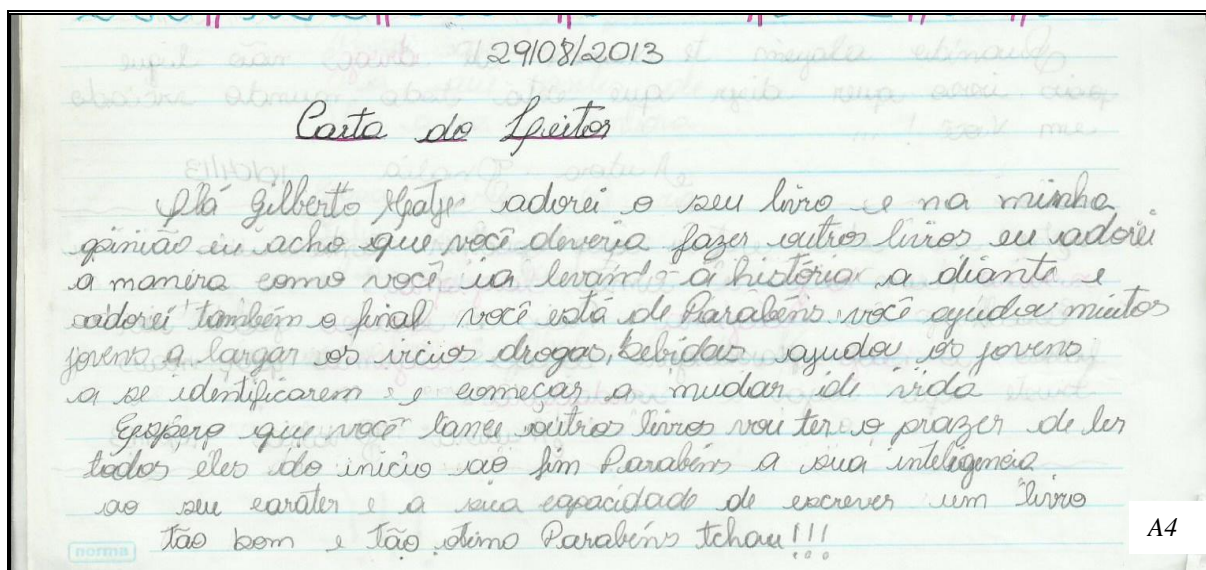 29/08/2013
Carta do Leitor
Olá Gilberto adorei o seu livro e na minha
opinião eu acho que você deveria fazer outros livros eu adorei
a manira como você ia levando a história a diante e
adorei também o final você está de Parabéns você ajudou muitos
jovens a largar os vícios drogas, bebidas ajudou os jovens
a se identificarem e começar a mudar de vida
Espero que você lance outros livros vou ter o prazer de ler
todos eles do início ao fim Parabéns a sua inteligencia
ao seu caráter e a sua capacidade de escrever um livro
tão bom e tão ótimo Parabéns tchau!!!
norma
A4